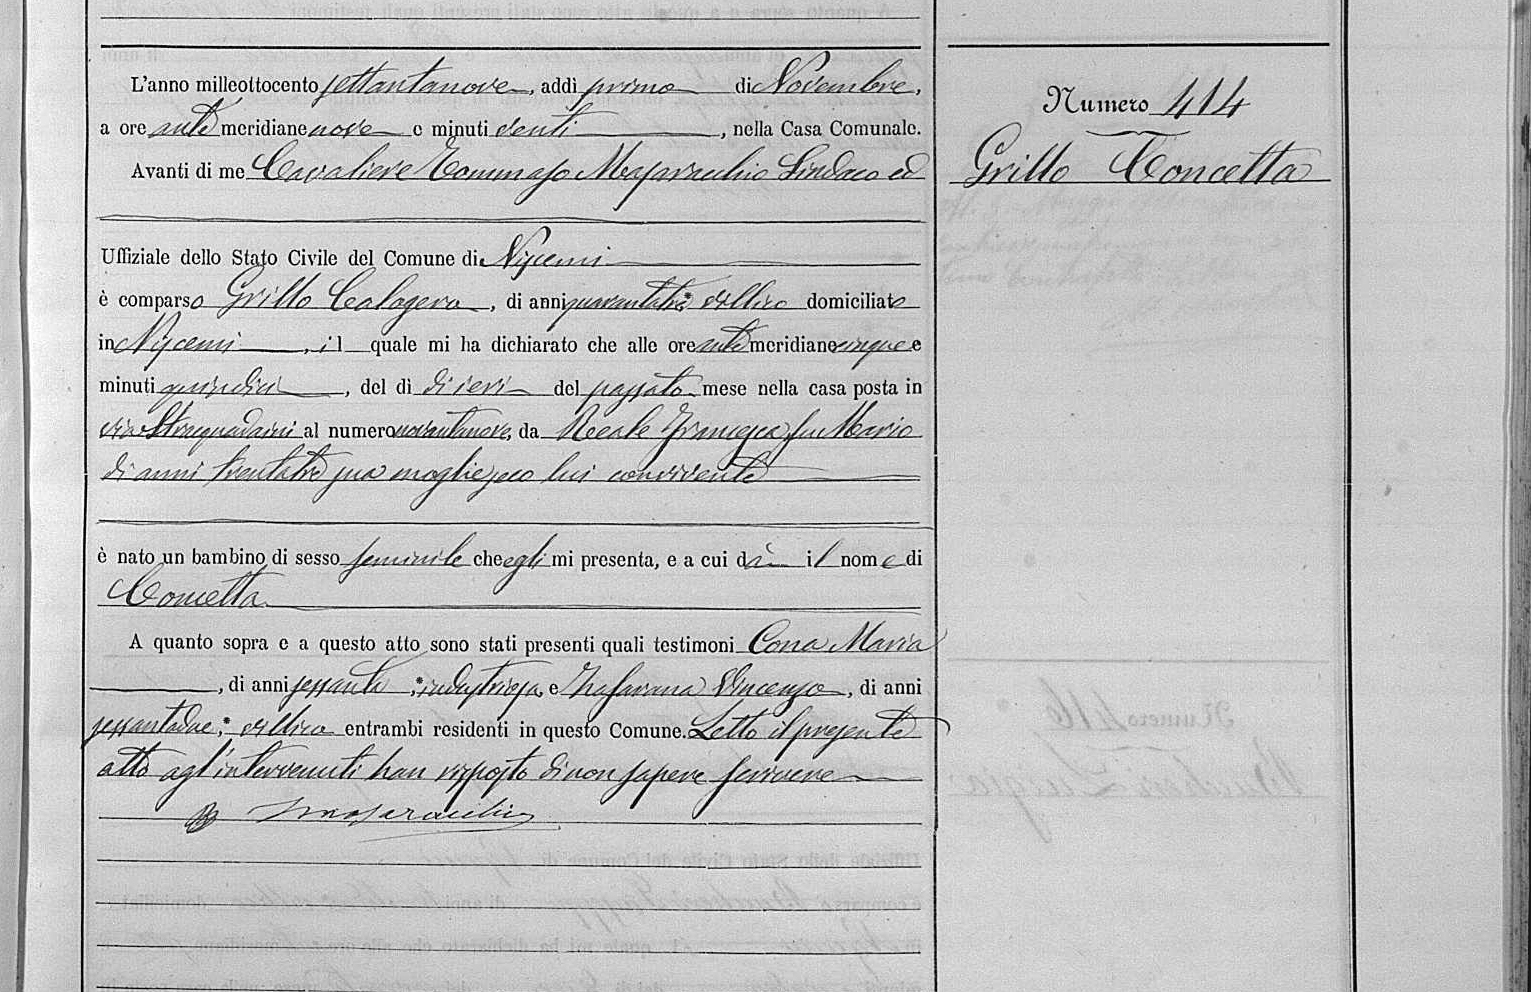 L'anno milleottocento settantanove, addì primo di Novembre,
a ore ante meridiane nove e minuti venti, nella Casa Comunale.
Avanti di me Cavaliere Tommaso Masaracchio Sindaco ed
Uffiziale dello Stato Civile del Comune di Niscemi
è comparso Grillo Calogero, di anni quarantatre villico domiciliato
in Niscemi, il quale mi ha dichiarato che alle ore ante meridiane cinque e
minuti quindici, del dì di ieri del passato mese nella casa posta in
via al numero novantanove, da Reale Francesca fu Mario
di anni trentatre sua moglie seco lui convivente
è nato un bambino di sesso feminile che egli mi presenta, e a cui dà il nome di
Concetta
A quanto sopra e a questo atto sono stati presenti quali testimoni Cona Maria
, di anni sessanta, industriosa, e Vincenzo, di anni
sessantadue, villico entrambi residenti in questo Comune. Letto il presente
atto agl'intervenuti han risposto di non sapere scrivere
Masaracchio
Numero 414
Grillo Concetta